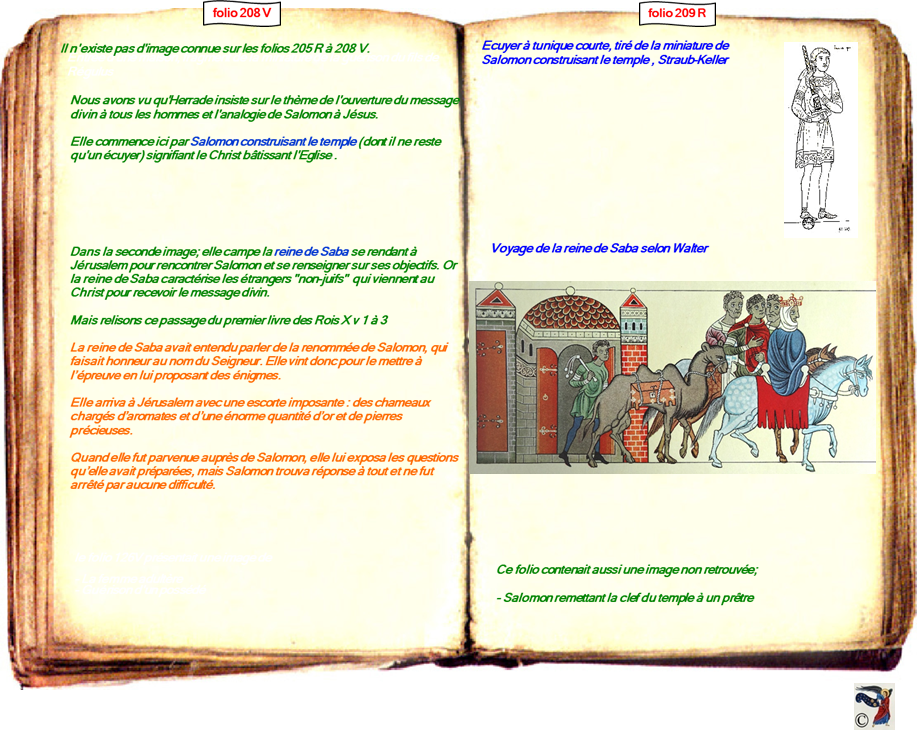 folio 208 V
Il n'existe pas d'image connue sur les folios 205 R à 208 V.
Nous avons vu qu'Herrade insiste sur le thème de l'ouverture du message
divin à tous les hommes et l'analogie de Salomon à Jésus.
Elle commence ici par Salomon construisant le temple (dont il ne reste
qu'un écuyer) signifiant le Christ bâtissant l'Eglise .
Dans la seconde image; elle campe la reine de Saba se rendant à
Jérusalem pour rencontrer Salomon et se renseigner sur ses objectifs. Or
la reine de Saba caractérise les étrangers "non-juifs" qui viennent au
Christ pour recevoir le message divin.
Mais relisons ce passage du premier livre des Rois X v 1 à 3
La reine de Saba avait entendu parler de la renommée de Salomon, qui
faisait honneur au nom du Seigneur. Elle vint donc pour le mettre à
l'épreuve en lui proposant des énigmes.
Elle arriva à Jérusalem avec une escorte imposante : des chameaux
chargés d'aromates et d'une énorme quantité d'or et de pierres
précieuses.
Quand elle fut parvenue auprès de Salomon, elle lui exposa les questions
qu'elle avait préparées, mais Salomon trouva réponse à tout et ne fut
arrêté par aucune difficulté.
folio 209 R
Ecuyer à tunique courte, tiré de la miniature de
Salomon construisant le temple , Straub-Keller
Voyage de la reine de Saba selon Walter
Ce folio contenait aussi une image non retrouvée;
- Salomon remettant la clef du temple à un prêtre
©